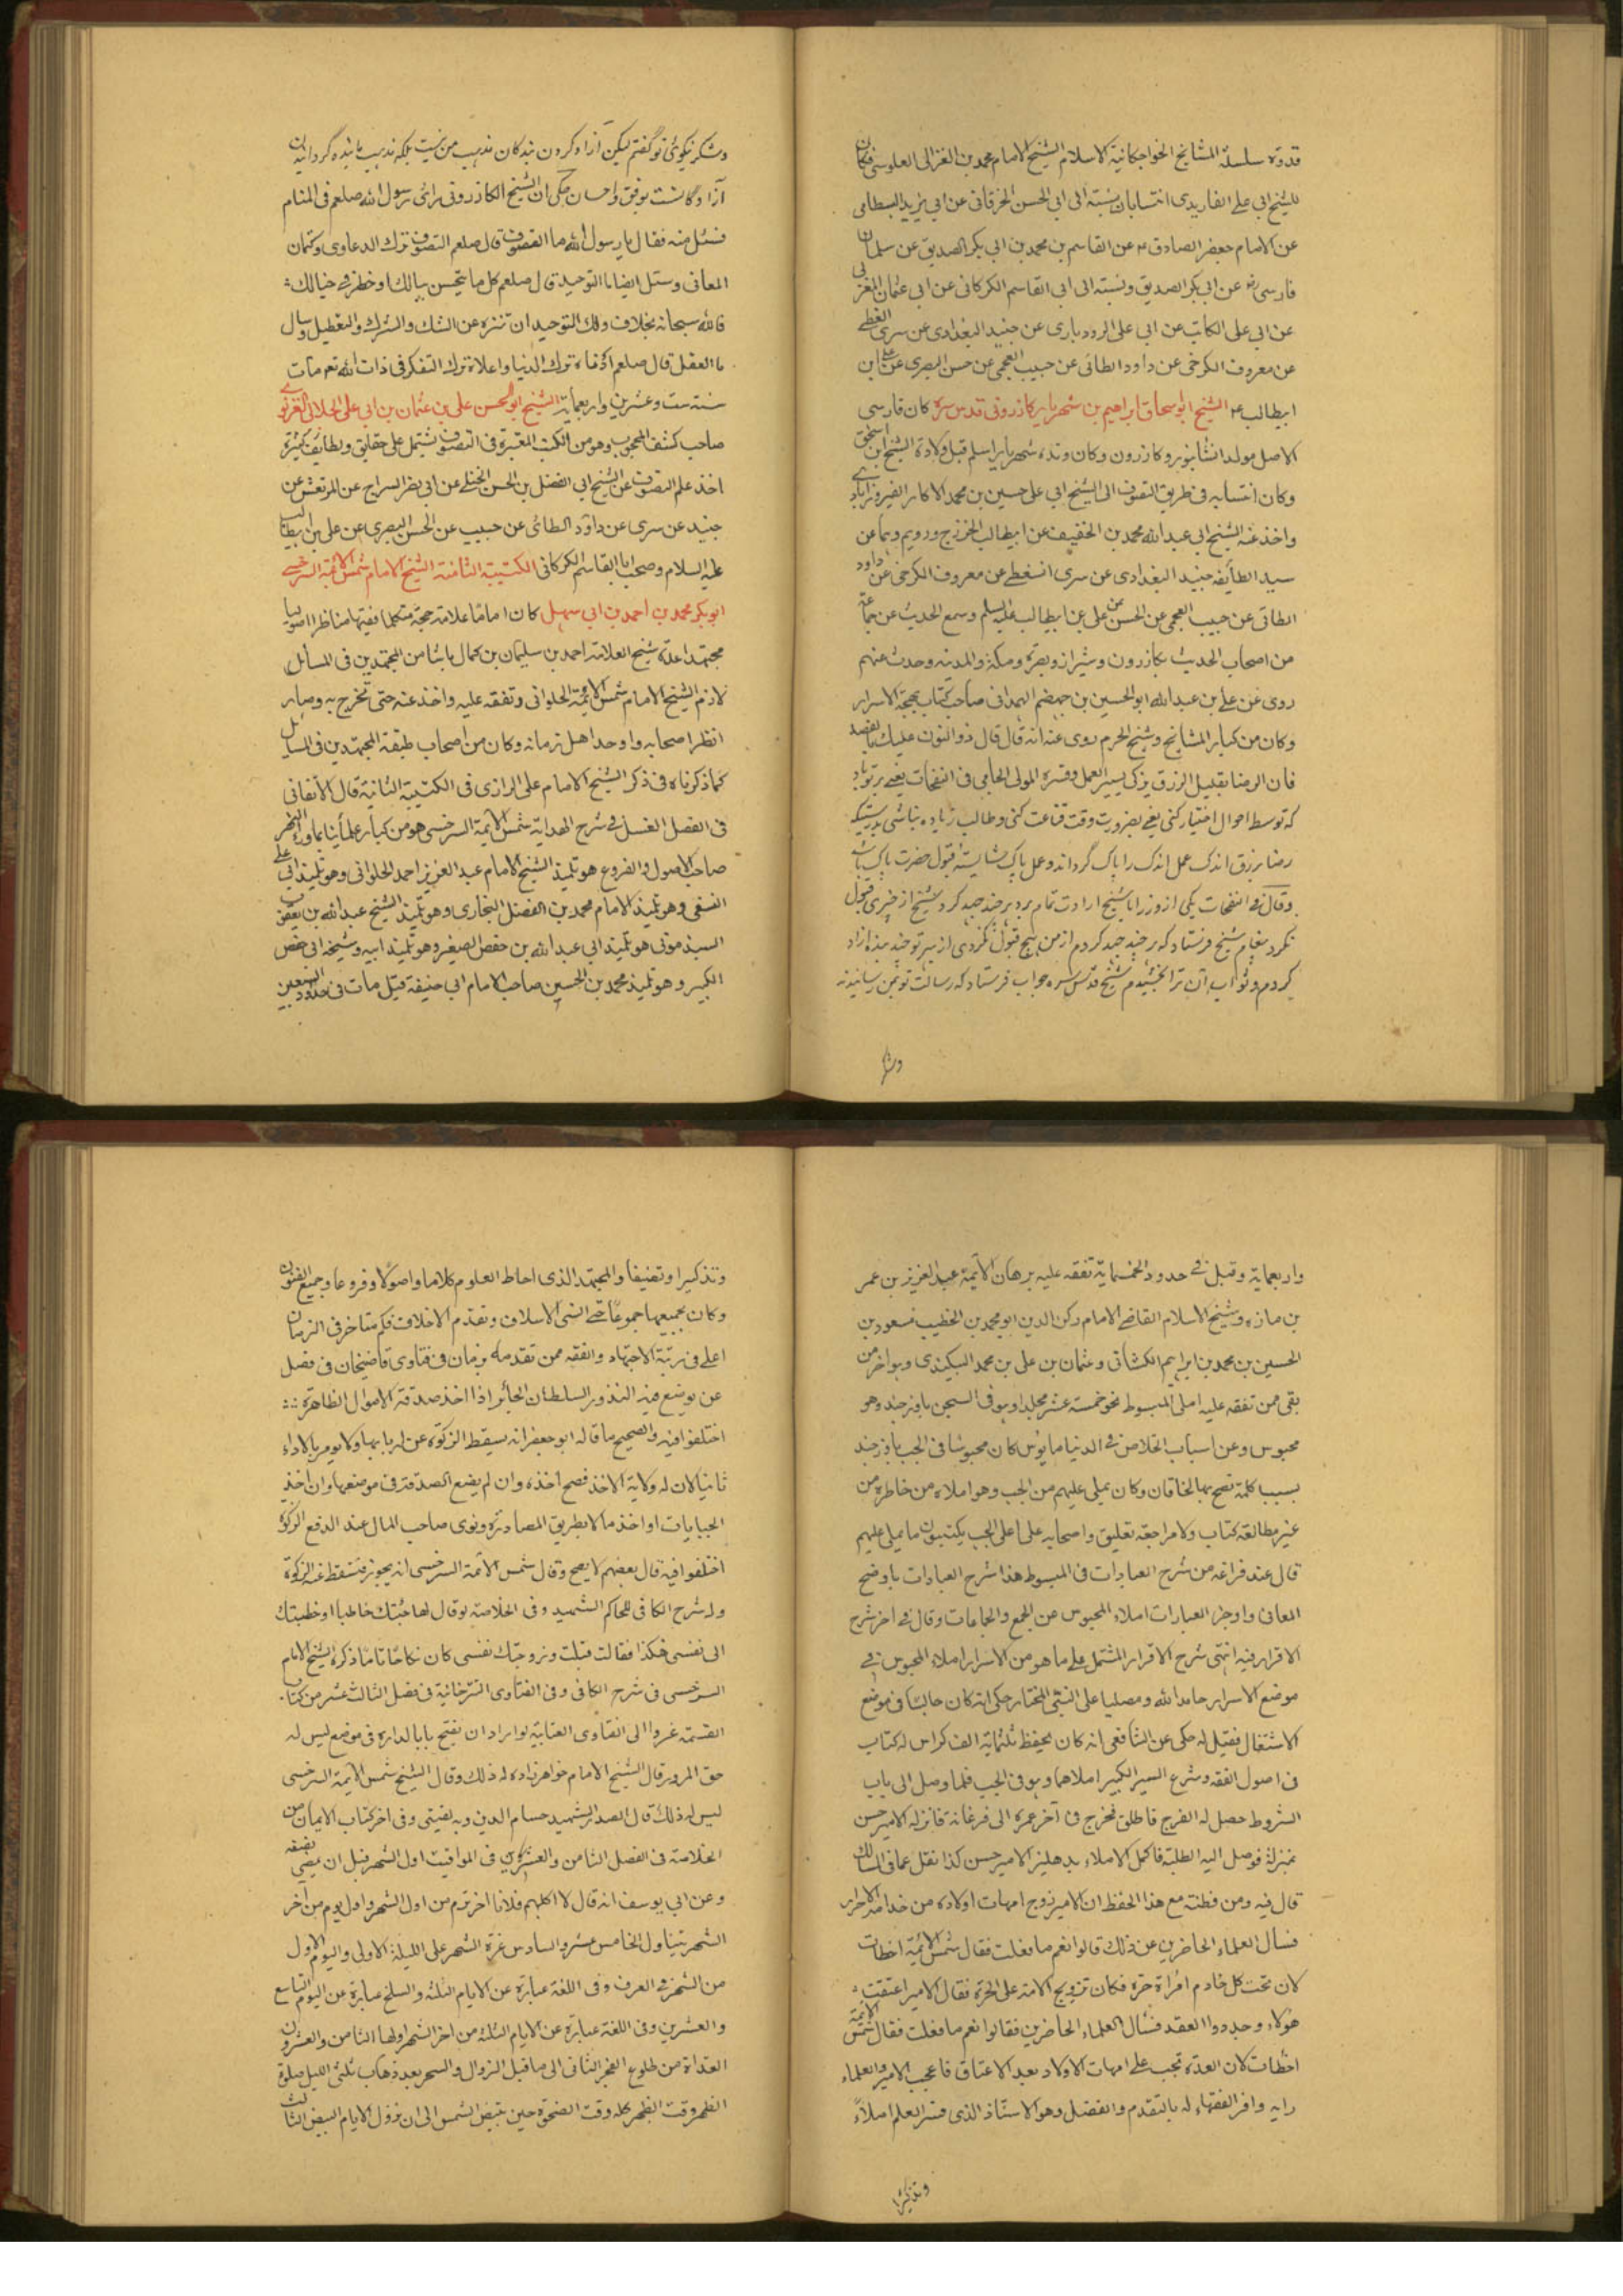 قدوة سلسلة المشايخ الخواجكانية الاسلام الشيخ الامام محمد بن الغزالى الطوسى فكان
للشيخ ابى على الفاريدى انتسابان نسبته الى ابى الحسن الخرقانى عن ابى يزيد البسطامى
عن الامام جعفر الصادق عن القاسم بن محمد بن ابى بكر الصديق عن سلمان
فارسى عن ابى بكر الصديق ونسبته الى ابى القاسم الكركانى عن ابى عثمان المغربى
عن ابى على الكاتب عن ابى على الرودبارى عن جنيد البغدادى عن سرى السقطى
عن معروف الكرخى عن داود الطائى عن حبيب العجمى عن حسن البصرى عن على ابن
ابيطالب الشيخ ابو اسحاق ابراهيم بن شهريار كازرونى قدس سره كان فارسى
الاصل مولدا نشا بنورد كازرون وكان والده شهريار اسلم قبل ولادة الشيخ ابى اسحق
وكان انتسابه فى طريق التصوف الى الشيخ ابى على حسين بن محمد الاكار الفيروزابادى
واخذ عنه الشيخ ابى عبد الله محمد بن الخفيف عن ابيطالب الخزرج ورويم وهما عن
سيد الطايفه جنيد البغدادى عن سرى السقطى عن معروف الكرخى عن داود
الطائى عن حبيب العجمى عن الحسن عن على بن ابيطالب عليه السلم وسمع الحديث عن جماعة
من اصحاب الحديث بكازرون وشيراز وبصره ومكة والمدينه وحدث عنهم
روى عن على بن عبد الله ابو الحسين بن جهضم الهمدانى صاحب كتاب بهجة الاسرار
وكان من كبار المشايخ وشيخ الحرم روى عنه انه قال قال ذو النون عليك بالقصد
فان الرضا بقليل الرزق يزكى يسير العمل وفسره المولى الجامى فى النفحات يعنى بر تو باد
كه توسط احوال اختيار كنى يعنى بضرورت وقت قناعت كنى وطالب زياده نباشى بدرستيكه
رضا برزق اندك عمل اندك را پاك گرداند وعمل پاك شايسته قبول حضرت پاك باشد
وقال فى النفحات يكى از وزرا با شيخ ارادت تمام برد هر چند جهد كرد شيخ از چيزى قبول
نكرد پيغام شيخ فرستاد كه هر چند جهد كردم از من هيچ قبول نكردى از بهر تو چند بنده ازاد
كردم وثواب آن ترا بخشيدم شيخ قدس سره جواب فرستاد كه رسالت تو بمن رسانيدند
وشكر
وشكر نيكوئ تو گفتم ليكن آزاد كردن بندگان مذهب من نيست بلكه مذهب ما بنده گردانيدن
آزادگانست بوفق واحسان حكى ان الشيخ الكازرونى راى رسول الله صلعم فى المنام
فسئل منه فقال يا رسول الله ما التصوف قال صلعم التصوف ترك الدعاوى وكتمان
المعانى وسئل ايضا ما التوحيد قال صلعم كل ما يتحسن ببالك او خطر فى خيالك
فالله سبحانه بخلاف ذلك التوحيد ان تنزه عن الشك والشرك والتعطيل وسال
ما العقل قال صلعم ادناه ترك الدنيا واعلاه ترك التفكر فى ذات الله تعه مات
سنه ست وعشرين واربعمايه الشيخ ابو الحسن على بن عثمان بن ابى على الجلابى الغزنوى
صاحب كشف المحجوب وهو من الكتب المعتبرة فى التصوف يشتمل على حقايق ولطايف كثيرة
اخذ علم التصوف عن الشيخ ابى الفضل بن الحسن الختلى عن ابى نصر السراج عن المرتعش عن
جنيد عن سرى عن داود الطائى عن حبيب عن الحسن البصرى عن على بن ابيطالب
عليه السلام وصحب ابا القاسم الكركانى الكتيبة الثامنة الشيخ الامام شمس الائمة السرخسى
ابو بكر محمد بن احمد بن ابى سهل كان اماما علامة حجة متكلما فقيها مناظرا اصوليا
مجتهدا عده شيخ العلامة احمد بن سليمان بن كمال باشا من المجتهدين فى المسائل
لازم الشيخ الامام شمس الائمة الحلوانى وتفقه عليه واخذ عنه حتى تخرج به وصار
انظر اصحابه واوحد اهل زمانه وكان من اصحاب طبقة المجتهدين فى المسايل
كما ذكرناه فى ذكر الشيخ الامام على الرازى فى الكتيبة الثانية قال الاتقانى
فى الفصل الغسل فى شرح الهداية شمس الائمة السرخسى هو من كبار علمائنا بما وراء النهر
صاحب الاصول والفروع هو تلميذ الشيخ الامام عبد العزيز احمد الحلوانى وهو تلميذ ابى على
النسفى وهو تلميذ الامام محمد بن الفضل البخارى وهو تلميذ الشيخ عبد الله بن يعقوب
السبذمونى هو تلميذ ابى عبد الله بن حفص الصغير وهو تلميذ ابيه وشيخه ابى حفص
الكبير وهو تلميذ محمد بن الحسين صاحب الامام ابى حنيفة قيل مات فى حدود التسعين
واربعماية وقيل فى حدود الخمسماية تفقه عليه برهان الائمة عبد العزيز بن عمر
بن مازه وشيخ الاسلام القاضى الامام ركن الدين ابو محمد بن الخطيب مسعود بن
الحسين بن محمد بن ابراهيم الكشانى وعثمان بن على بن محمد البيكندى وهو اخر من
بقى ممن تفقه عليه املى المبسوط نحو خمسة عشر مجلدا وهو فى السجن باوزجند وهو
محبوس وعن اسباب الخلاص فى الدنيا مايوس كان محبوسا فى الجب باوزجند
بسبب كلمة نصح بها الخاقان وكان يملى عليهم من الجب وهو املاه من خاطره من
غير مطالعة كتاب ولا مراجعة تعليق واصحابه على اعلى الجب يكتبون ما يملى عليهم
قال عند فراغه من شرح العبادات فى المبسوط هذا شرح العبادات باوضح
المعانى واوجز العبارات املاء المحبوس عن الجمع والجماعات وقال فى اخر شرح
الاقرار فيه انتهى شرح الاقرار المشتمل على ما هو من الاسرار املاء المحبوس فى
موضع الاسرار حامدا لله ومصليا على النبى المختار حكى انه كان جالسا فى موضع
الاشتغال فقيل له حكى عن الشافعى انه كان يحفظ ثلثماية الف كراس له كتاب
فى اصول الفقه وشرع السير الكبير املاهما وهو فى الجب فلما وصل الى باب
الشروط حصل له الفرج فاطلق فخرج فى آخر عمره الى فرغانة فانزله الامير حسن
بمنزله فوصل اليه الطلبة فاكمل الاملاء بدهليز الامير حسن كذا نقل عما فى المسالك
قال فيه ومن فطنته مع هذا الحفظ ان الامير زوج امهات اولاده من خدامه الاحرار
فسال العلماء الحاضرين عن ذلك قالوا نعم ما فعلت فقال شمس الائمة اخطات
لان تحت كل خادم امراة حرة فكان تزويج الامة على الحرة فقال الامير اعتقت
هؤلاء وجددوا العقد فسال العلماء الحاضرين فقالوا نعم ما فعلت فقال شمس الائمة
اخطات لان العدة تجب على امهات الاولاد بعد الاعتاق فاعجب الامير والعلماء
رايه واقر الفقهاء له بالتقدم والفضل وهو الاستاذ الذى فسر العلم املاءً
وتذكيرا
وتذكيرا وتصنيفا والمجتهد الذى احاط العلوم كلاما واصولا وفروعا وجميع الفنون
وكان بجميعها جموعا حتى انسى الاسلاف وتقدم الاخلاف فكم متاخر فى الزمان
اعلى فى رتبة الاجتهاد والفقه ممن تقدمه بزمان فى فتاوى قاضيخان فى فصل
عن يوضع فيه النذور السلطان الجائر اذا اخذ صدقة الاموال الظاهرة
اختلفوا فيه والصحيح ما قاله ابو جعفر انه يسقط الزكوة عن اربابها ولا يومر بالاداء
ثانيا لان له ولاية الاخذ فصح اخذه وان لم يضع الصدقة فى موضعها وان اخذ
الجبايات او اخذ مالا بطريق المصادرة ونوى صاحب المال عند الدفع الزكوة
اختلفوا فيه قال بعضهم لا يصح وقال شمس الائمة السرخسى انه يجوز فتسقط عنه الزكوة
وله شرح الكافى للحاكم الشهيد وفى الخلاصة لو قال لها جئتك خاطبا او خطبتك
الى نفسى هكذا فقالت قبلت وزوجتك نفسى كان نكاحا تاما ذكره الشيخ الامام
السرخسى فى شرح الكافى وفى الفتاوى التترخانية فى فصل الثالث عشر من كتاب
القسمة عزوا الى الفتاوى العتابية لو اراد ان يفتح بابا لداره فى موضع ليس له
حق المرور قال الشيخ الامام خواهرزاده له ذلك وقال الشيخ شمس الائمة السرخسى
ليس له ذلك قال الصدر الشهيد حسام الدين وبه يفتى وفى اخر كتاب الايمان من
الخلاصة فى الفصل الثامن والعشرون فى المواقيت اول الشهر قبل ان يمضى نصفه
وعن ابى يوسف انه قال لا اكلهم فلانا اخر يوم من اول الشهر واول يوم من آخر
الشهر يتناول الخامس عشر والسادس غرة الشهر على الليلة الاولى واليوم الاول
من الشهر فى العرف وفى اللغة عبارة عن الايام الثلثه والسلخ عبارة عن اليوم التاسع
والعشرين وفى اللغة عبارة عن الايام الثلثه من اخر الشهر اولها الثامن والعشرون
الغداة من طلوع الفجر الثانى الى ما قبل الزوال والسحر بعد ذهاب ثلثى الليل صلوة
الظهر وقت الظهر كله وقت الضحوة حين تبيض الشمس الى ان تزول الايام البيض الثالث